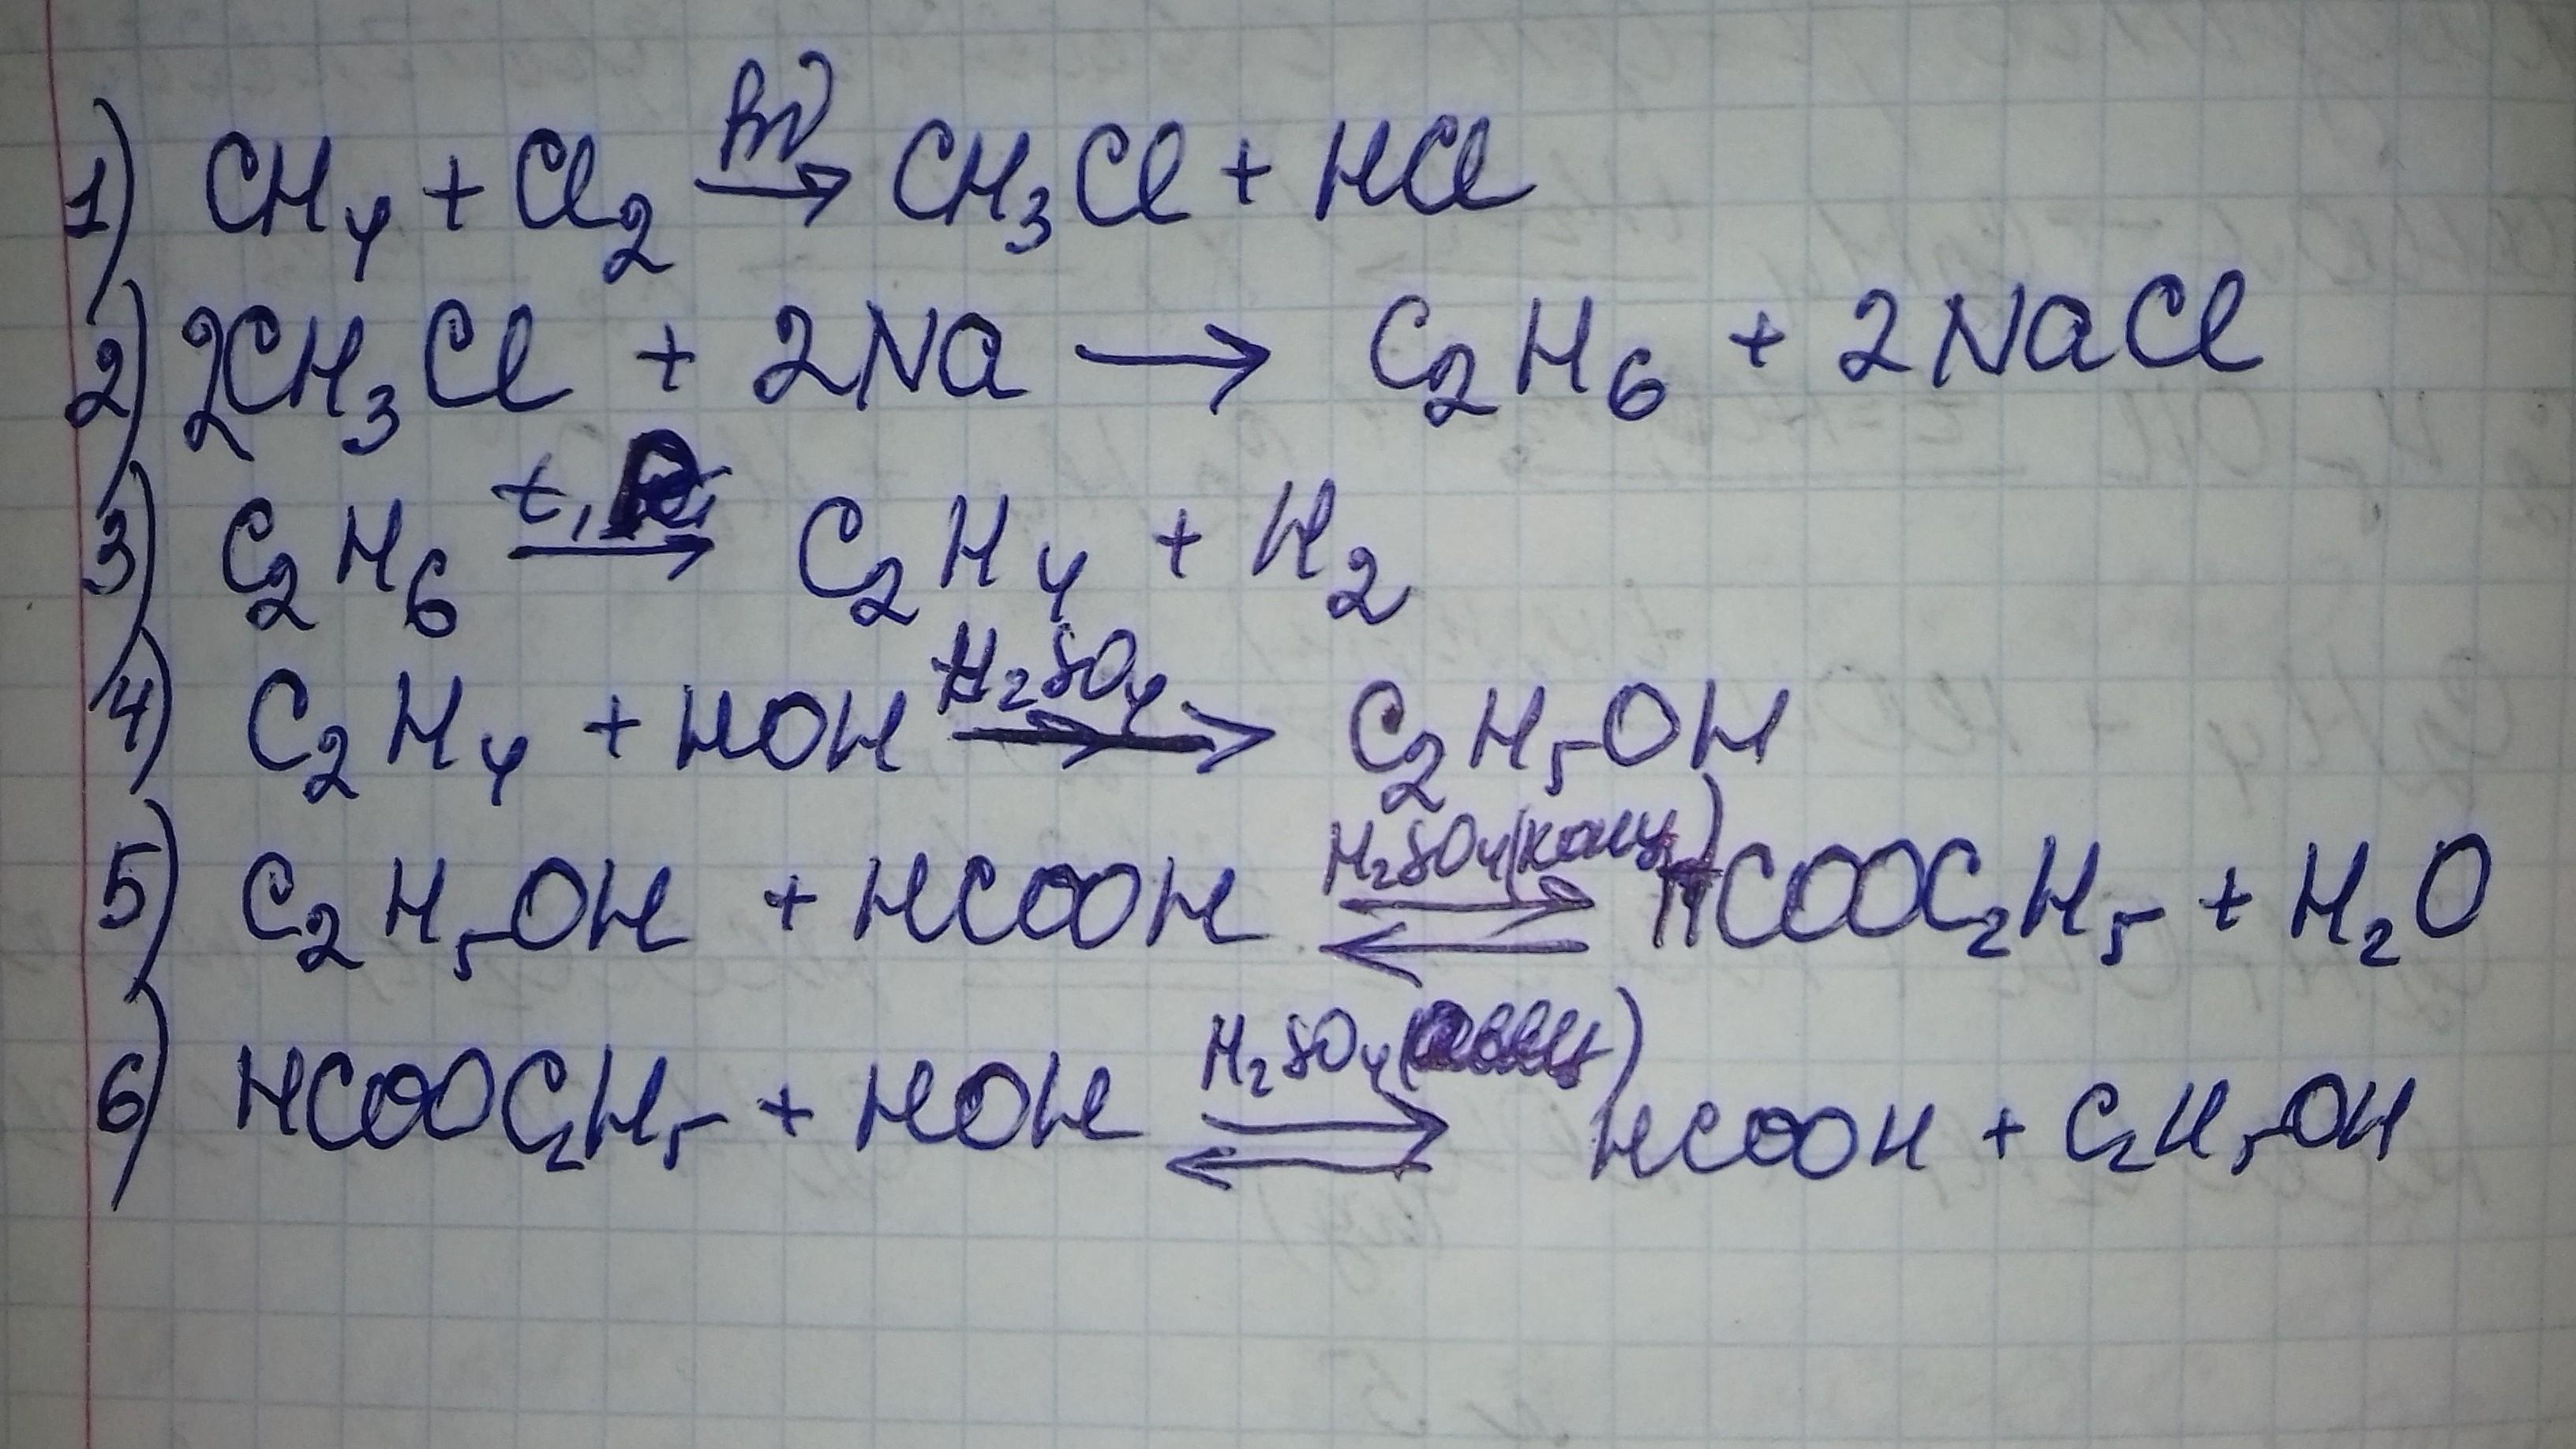 1) CH₄ + Cl₂ →hν CH₃Cl + HCl
2) 2CH₃Cl + 2Na → C₂H₆ + 2NaCl
3) C₂H₆ →t, C₂H₄ + H₂
4) C₂H₄ + HOH →H₂SO₄ C₂H₅OH
5) C₂H₅OH + HCOOH ⇄H₂SO₄(конц) HCOOC₂H₅ + H₂O
6) HCOOC₂H₅ + HOH ⇄H₂SO₄ HCOOH + C₂H₅OH